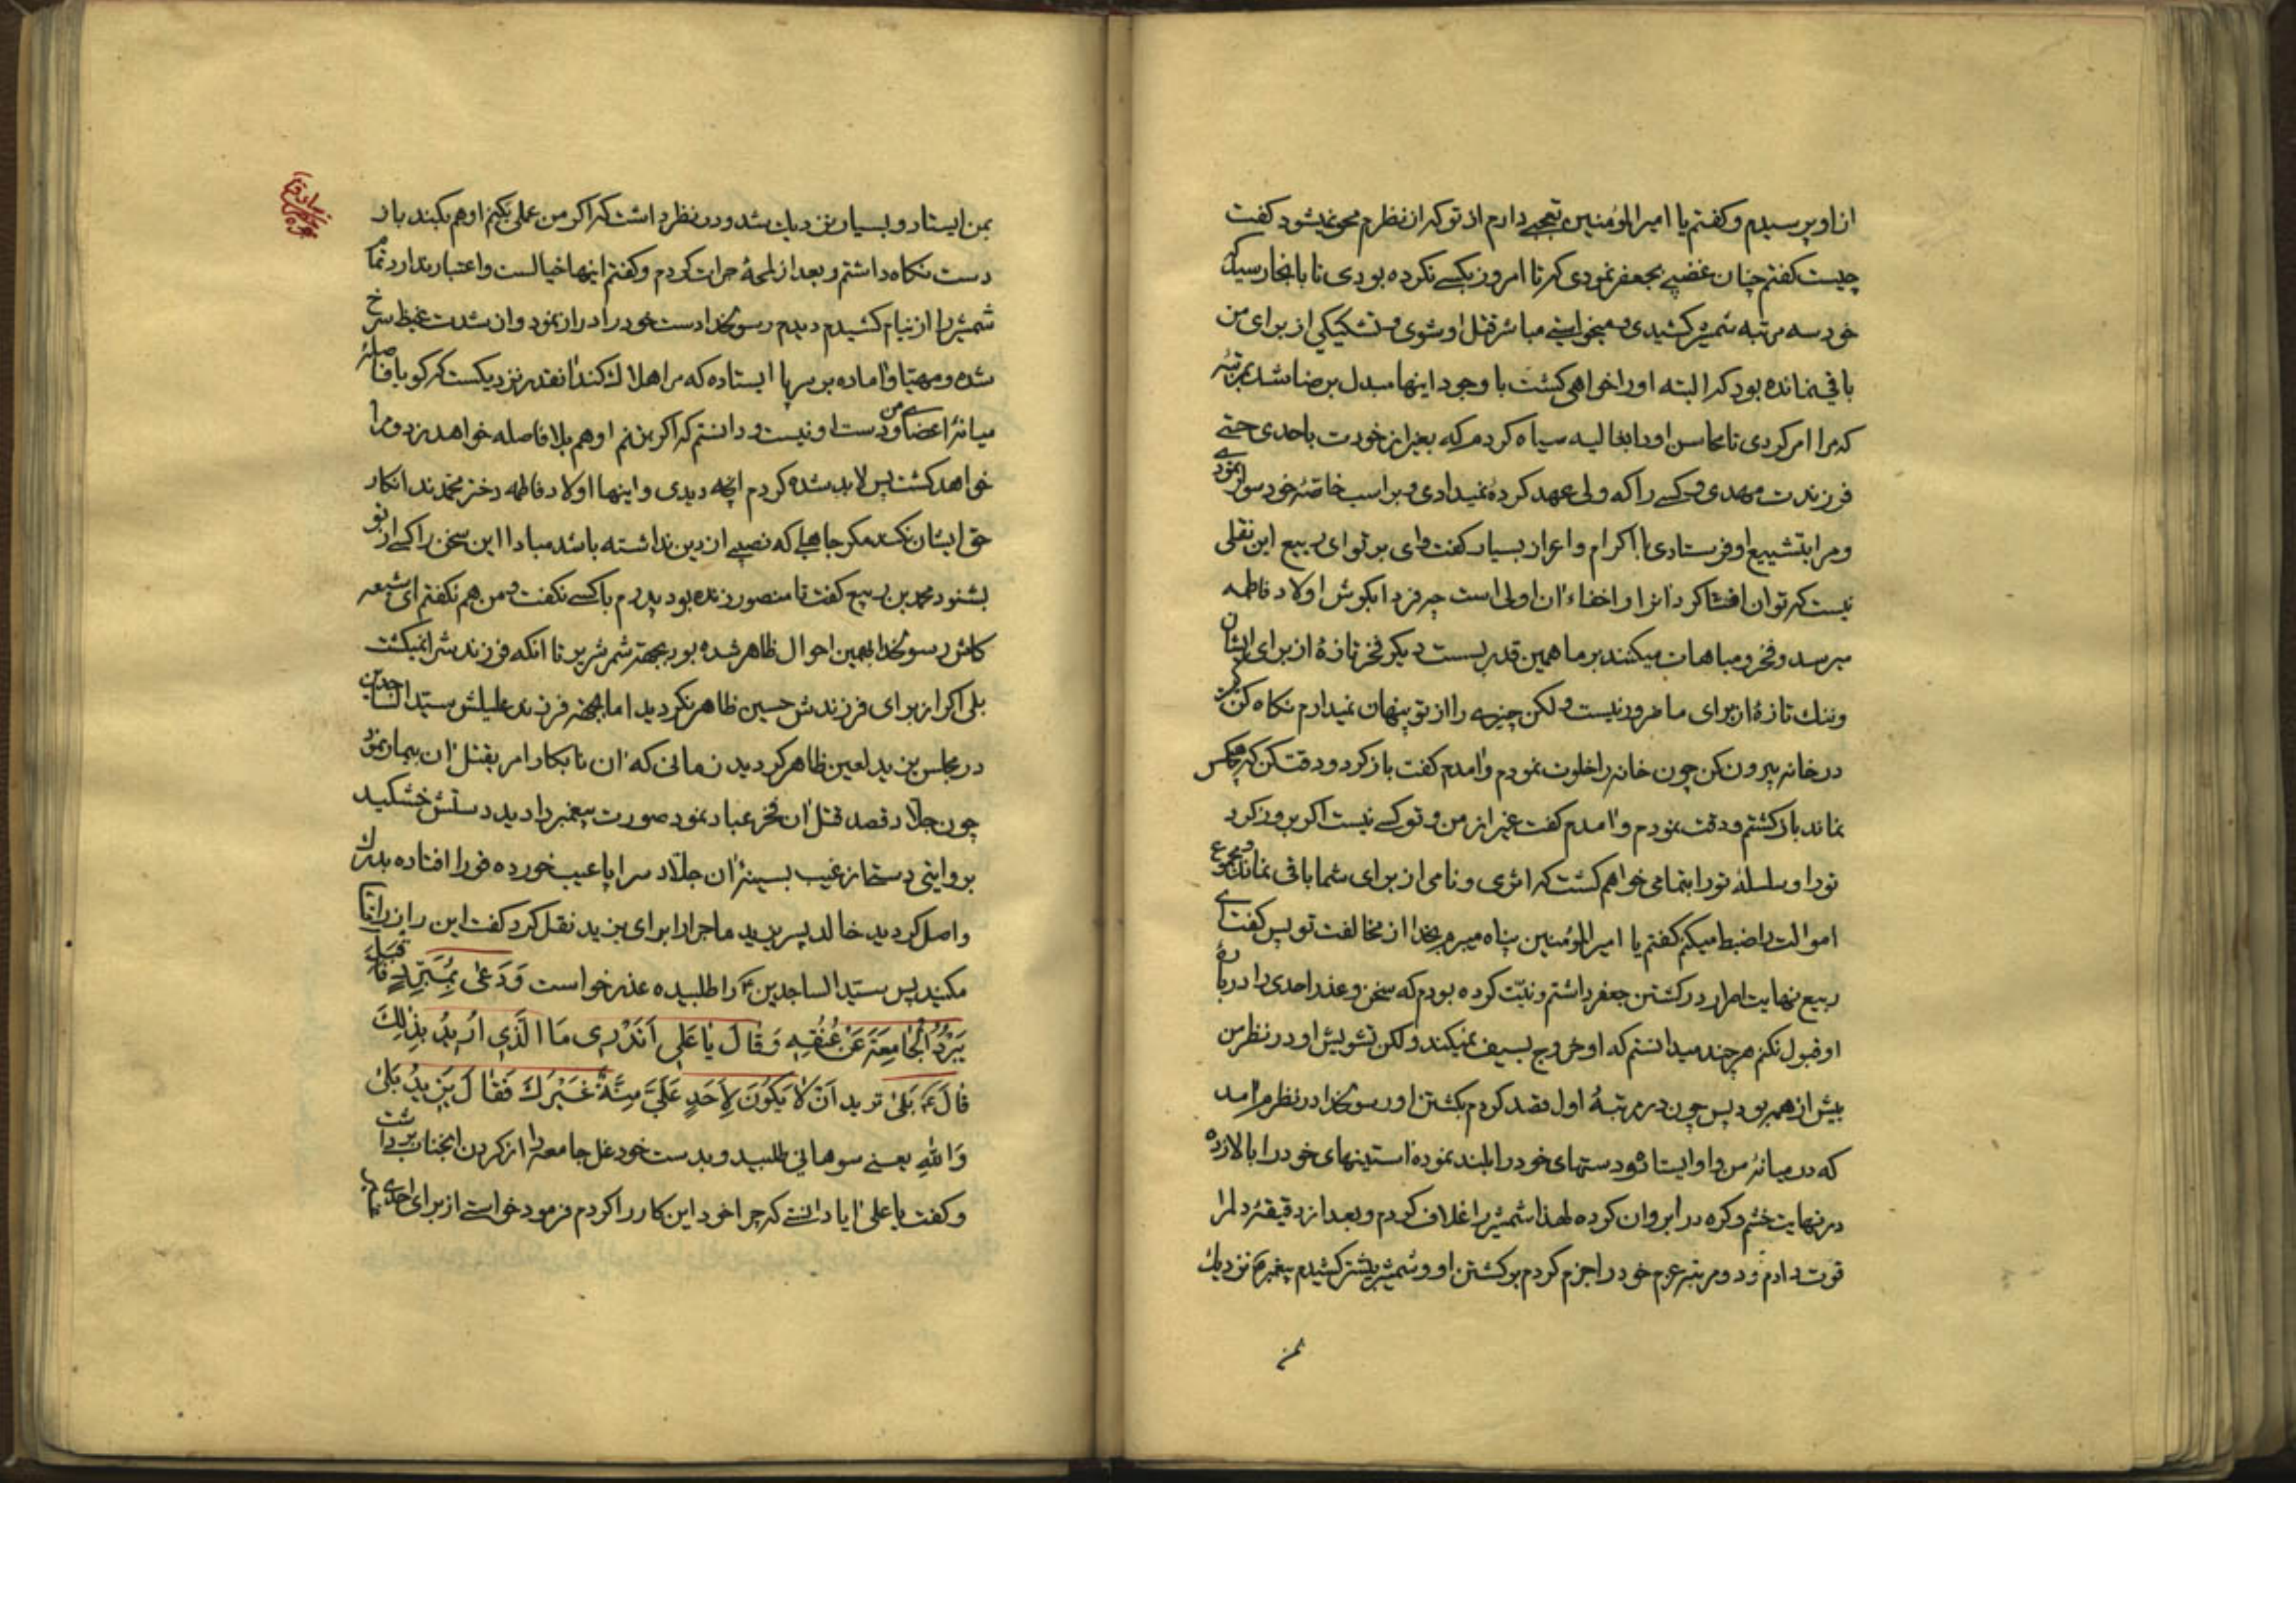 ازاو پرسیدم و کفتم یا امیرالمؤمنین تعجبی دارم از تو که از نظرم محو نمیشود کفت
چیست کفتم چنان غضبی بجعفر نمودی که تا امروز بکسی نکرده بودی تا بانجا رسید که
خود سه مرتبه شمشیر کشیدی و میخواستی مباشر قتل او شوی و تشکیکی از برای من
باقی نمانده بود که البته او را خواهی کشت با وجود اینها مبدل برضا شد بمرتبهٔ
که مرا امر کردی تا محاسن او را بغالیه سیاه کردم که بغیر از خودت باحدی حتی
فرزندت مهدی و کسی را که ولی عهد کردهٔ نمیدادی و بر اسب خاصهٔ خود سوار نمودی
و مرا بتشییع او فرستادی با اکرام و اعزاز بسیار کفت وای بر تو ای ربیع این نقلی
نیست که توان افشا کرد انرا و اخفاء ان اولی است چه فردا بکوش اولاد فاطمه
میرسد و فخر و مباهات میکنند بر ما همین قدر بست دیکر فخر تازهٔ از برای ایشان
و ننك تازهٔ از برای ما ضرور نیست و لکن چیزی را از تو پنهان نمیدارم نکاه کن هرکه
در خانه بیرون کن چون خانه را خلوت نمودم و امدم کفت باز کرد و دقت کن که هیچکس
نماند باز کشتم و دقت نمودم و امدم کفت غیر از من و تو کسی نیست اکر بروز کرد
تو را و سلسلهٔ تو را بتمامی خواهم کشت که اثری و نامی از برای شما باقی نماند و مجموع
اموالت را ضبط میکنم کفتم یا امیرالمؤمنین پناه میبرم بخدا از مخالفت تو پس کفت ای
ربیع نهایت اصرار در کشتن جعفر داشتم و نیّت کرده بودم که سخن و عذر احدی را در بارهٔ
او قبول نکنم هر چند میدانستم که او خروج بسیف نمیکند و لکن تشویش او در نظر من
بیش از همه بود پس چون در مرتبهٔ اول قصد کردم بکشتن او رسولخدا در نظرم امد
که در میانهٔ من و او ایستاده و دستهای خود را بلند نموده استینهای خود را بالا زده
در نهایت خشم و کره در ابروان کرده لهذا شمشیر را غلاف کردم و بعد از دقیقهٔ دلرا
قوت دادم و دو مرتبه عزم خود را جزم کردم بر کشتن او و شمشیر بیشتر کشیدم پیغمبر ص نزدیك
بمن
بمن ایستاد و بسیار نزدیك شد و در نظر داشت که اکر من عملی بکنم او هم بکند باز
دست نکاه داشتم و بعد از لمحهٔ جرات کردم و کفتم اینها خیالست و اعتبار ندارد تمام
شمشیر را از نیام کشیدم دیدم رسولخدا دست خود را دراز نمود و ان شدت غیظ سرخ
شده و مهیّا و اماده بر سر پا ایستاده که مرا هلاك کند انقدر نزدیکست که کویا فاصلهٔ
میانهٔ اعضای من و دست او نیست و دانستم که اکر بزنم او هم بلا فاصله خواهد زد و مرا
خواهد کشت پس لابد شده کردم انچه دیدی و اینها اولاد فاطمه دختر محمدند انکار
حق ایشان نکند مکر جاهلی که نصیبی از دین نداشته باشد مبادا این سخن را کسی از تو
بشنود محمد بن ربیع کفت تا منصور زنده بود پدرم با کسی نکفت و من هم نکفتم ای شیعه
کاش رسولخدا بهمین احوال ظاهر شده بود بجهة شمر شریر تا انکه فرزندش را نمیکشت
بلی اکر از برای فرزندش حسین ظاهر نکردید اما بجهة فرزند علیلش سیّد الساجدین
در مجلس یزید لعین ظاهر کردید زمانی که ان نابکار امر بقتل ان بیمار نمود
چون جلّاد قصد قتل ان فخر عباد نمود صورت پیغمبر را دید دستش خشکید
بروایتی دستی از غیب بسینهٔ ان جلّاد سراپا عیب خورده فورا افتاده بدرك
واصل کردید خالد پسر یزید ماجرا را برای یزید نقل کرد کفت این راز را افشا
مکنید پس سیّد الساجدین ع را طلبیده عذر خواست وَدَعیٰ بِمُبَرِّدٍ فَاَقبَلَ
یَبرُدُ الْجٰامِعَةَ عَنْ عُنُقِهِ وَقٰالَ یٰا عَلِی اَتَدْرِی مَا الَّذِی اُرِیدُ بِذٰلِكَ
قٰالَ ع بَلیٰ ترید اَنْ لٰا یَکُوُنَ لِاَحَدٍ عَلَیَّ مِنَّةٌ غَیْرُكَ فَقٰالَ یَزِیدُ بَلیٰ
وَاللهِ یعنی سوهانی طلبید و بدست خود غل جامعه را از کردن انجناب برداشت
و کفت یا علی ایا دانستی که چرا خود این کار را کردم فرمود خواستی از برای احدی